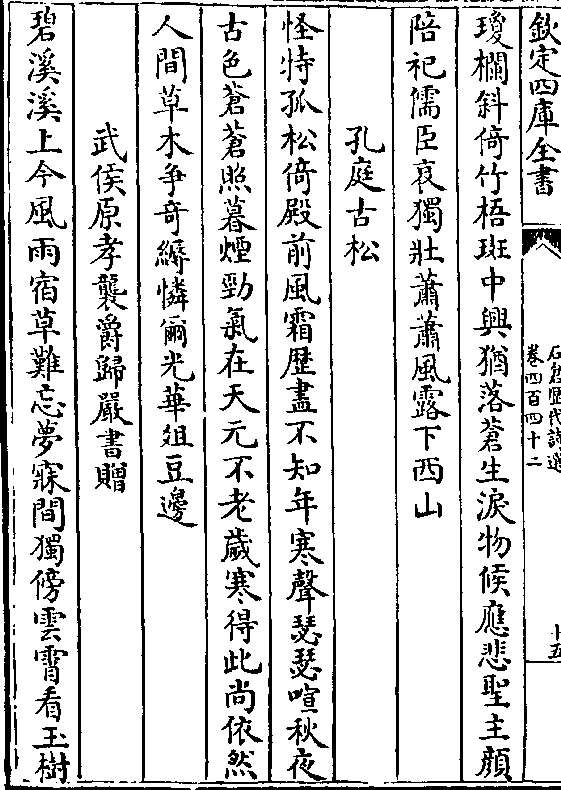 欽定四庫全書
石倉歷代詩選
卷四百四十二
十五
瓊欄斜倚竹梧斑中興猶落蒼生淚物候應悲聖主顔
陪祀儒臣哀獨壯蕭蕭風露下西山
孔庭古松
怪特孤松倚殿前風霜歴盡不知年寒聲瑟瑟喧秋夜
古色蒼蒼照暮煙勁氣在天元不老歲寒得此尚依然
人間草木争奇縟憐爾光華俎豆邊
武侯原孝襲爵歸嚴書贈
碧溪溪上今風雨宿草難忘夢寐間獨傍雲霄看玉樹